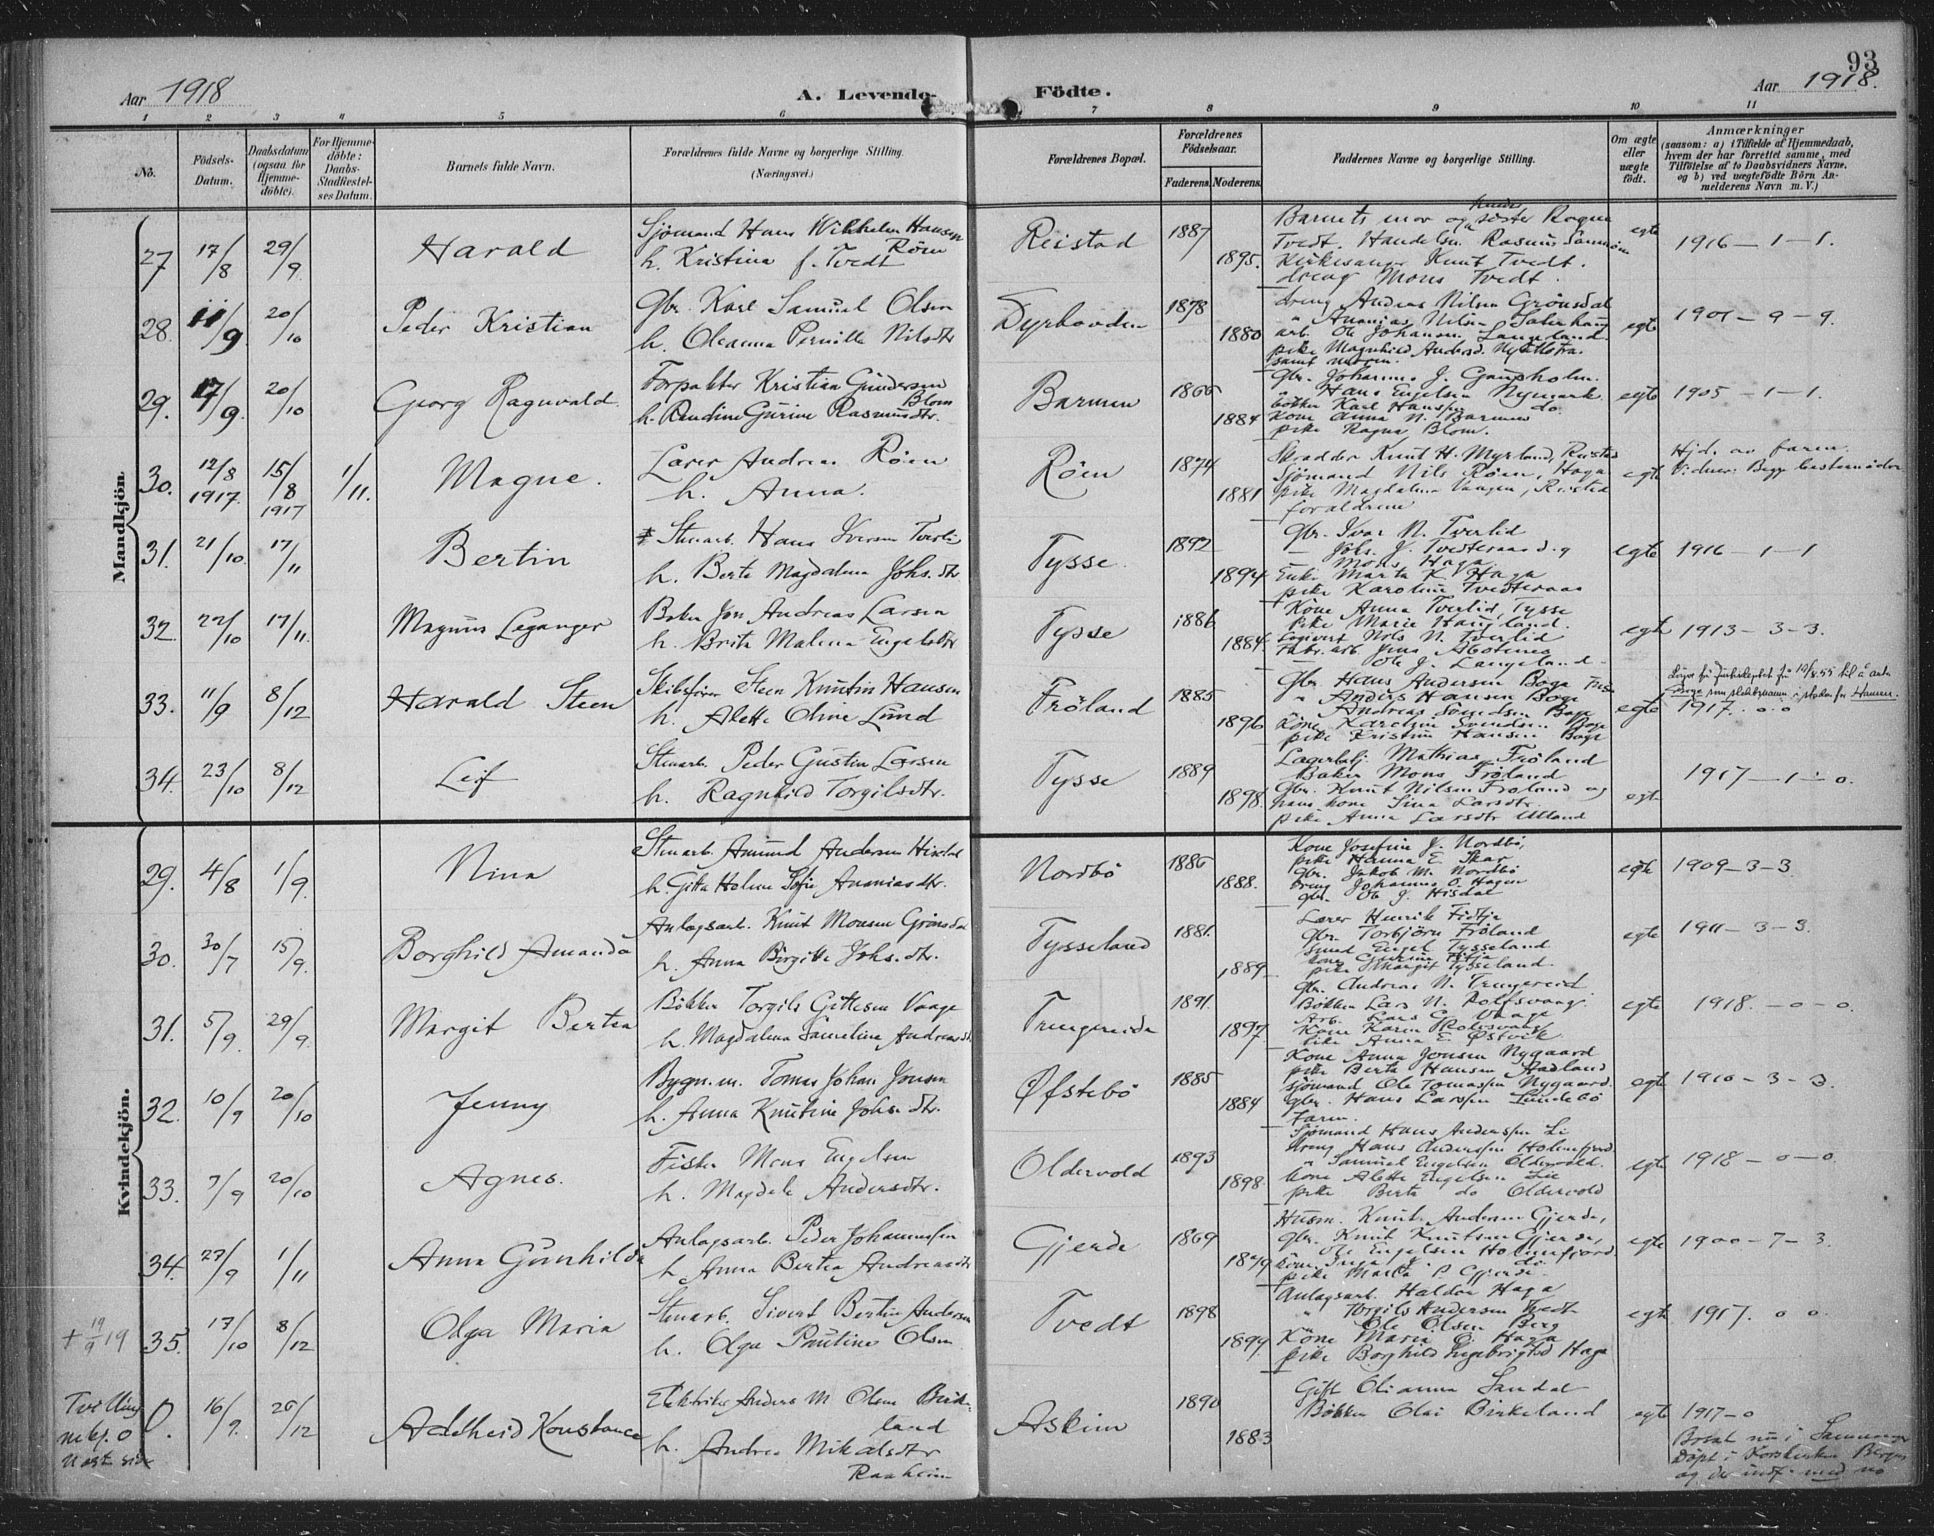 93
Aar 1918
A. Levende- Födte.
Aar 1918.
1 2 3 4 5 6 7 8 9 10 11
No.
Födsels-Datum.
Daabsdatum (ogsaa for Hjemme-döbte).
For Hjemme-döbte: Daabs-Stadfæstel-ses Datum.
Barnets fulde Navn.
Forældrenes fulde Navne og borgerlige Stilling.
(Næringsvei.)
Forældrenes Bopæl.
Forældrenes Födselsaar.
Faderens. Moderens.
Faddernes Navne og borgerlige Stilling.
Om ægte eller uægte födt.
Anmærkninger
(saasom: a) i Tilfælde af Hjemmedaab,
hvem der har forrettet samme, med
Tilföielse af to Daabsvidners Navne,
og b) ved uægtefödte Börn An-
melderens Navn m. V.)
Mandkjön.
27 17/8 29/9 Harald
Sjømand Hans Wilhelm Hansen Röen
h. Kristina f. Tvedt
Reistad 1887 1895.
Barnets mor og søster Ragna
Tvedt. Handelsm. Rasmus
Kirkesanger Knut Tvedt.
dreng Mons Tvedt.
egte 1916 - 1 - 1.
28. 11/9 20/10 Peder Kristian
Gbr. Karl Samuel Olsen
h. Oleanna Pernille Nilsdtr
Dyrhovden 1878 1880
dreng Andreas Nilsen Grönsdal
" Ananias Nilsen
arb. Ole Johansen Langeland.
pike Magnhild Andersd.
samt moren.
egte 1901 - 9 - 9.
29. 17/9. 20/10 Georg Ragnvald.
Forpakter Kristian Gundersen Blom
h. Randine Gurine Rasmusdtr.
Barmen 1866 1884
Gbr. Johannes J. Gaupholm.
" Hans Engelsen Nymark
bökker Karl Hanssen do.
Kone Anna N. Barmen
pike Ragna Blom.
egte 1905 - 1 - 1.
30. 12/8 1917. 15/8 1917 1/11. Magne.
Lærer Andreas Röen
h. Anna.
Röen 1874 1881
Skrædder Knut H. Myrland, Reistad
Sjömand Nils Röen, Haga
pike Magdalena Vaagen, Reistad
forældrene
egte
Hjd. av faren.
Vidner: Begge bestemödre
31. 21/10. 17/11 Bertin
Stenarb. Hans Iversen Tverli
h. Berte Magdalena Johs.dtr
Tysse. 1892 1894
Gbr. Ivar N. Tverlid
Johs. J. Tvedteraas d.y
Mons Haga
Enke Marta K. Haga
pike Karoline Tvedteraas
egte 1916 - 1 - 1
32. 22/10 17/11. Magnus Leganger
Baker Jon Andreas Larsen
h. Brita Malena Engebdtr
Tysse 1886 1884.
Kone Anna Tverlid, Tysse
Pike Marie Haugland.
Nils N. Tverlid
Fabr. arb. Jens
Ole J. Langeland
egte 1913 - 3 - 3.
33. 11/9 8/12 Harald Steen
Skibsförer Steen Knutin Hansen
h. Alette Oline Lund
Fröland 1885 1896
Gbr. Hans Andersen Boga
" Anders Hansen Boge
Andreas Svendsen Boge
Kone Karoline Svendsen Boge
pike Kristine Hansen Boge
egte 1917. 0-0
34. 23/10 8/12 Leif
Stenarb. Peder Gustin Larsen
h. Ragnhild Torgilsdtr.
Tysse 1889 1898.
Lagerbetj. Mathias Fröland
Baker Mons Fröland
Gbr. Knut Nilsen Froland og
hans kone Sina Larsdtr.
pike Anna Larsdtr Utland
egte 1917 - 1 - 0.
Kvindekjön.
29. 4/8 1/9. Nina
Stenarb. Amund Andersen Hisdal
h. Gitta Holene Sofie Ananiasdtr.
Nordbö 1886 1888.
Kone Josefine J. Nordbö,
pike Hanna E. Skar
gbr. Jakob M. Nordbö
dreng Johannes O. Hagen
gbr. Ole J. Hisdal
egte 1909 - 3 - 3.
30. 30/7 15/9. Borghild Amanda
Anlægsarb. Knut Monsen Grönsdal
h. Anna Birgitte Johs.dtr.
Tysseland 1881. 1889
Lærer Henrik Fidtje
Gbr. Torbjörn Fröland
Smed Engel Tysseland
kone
pike Margit Tysseland.
egte 1911 - 3 - 3.
31. 5/9. 29/9. Margit Bertea
Bökker Torgils Gittesen Vaage
h. Magdalena Samueline Andreasdt.
Trengereide 1891. 1897
gbr. Andreas N. Trengereid
Bökker Lars N. Rolfsvaag
Arb. Lars G. Vaage
Kone Karen Rolfsvaag
Pike Anna E. Östvik
egte 1918. - 0 - 0.
32. 10/9 20/10 Jenny
Bygn.m. Tomas Johan Jensen
h. Anna Knutine Johs. dtr.
Öfstebö 1885 1884
Kone Anna Jensen Nygaard
pike Berta Hansen Aadland
sjömand Ole Tomassen Nygaard.
gbr. Hans Larssen Lundebö
Faren.
egte 1910 - 3 - 3.
33. 7/9 20/10 Agnes.
Fisker Mons Engelsen
h. Magdela Andersdtr.
Oldervold 1893 1898.
Sjömand Hans Anderssen Li
dreng Hans Anderssen Holmefjord
" Samuel Engelsen Oldervold.
kone Alette Engelsen Lie
pike Berta do Oldervold
egte 1918 - 0 - 0.
34. 27/9 1/11 Anna Gunhilda
Anlægsarb. Peder Johannessen
h. Anna Bertea Andreasdtr
Gjerde 1869 1879
Husm. Knut Andersen Gjerde,
gbr. Knut Knutsen Gjerde,
Ole Engelsen Holmefjord
pike Marta P. Gjerde.
egte 1900 - 7 - 3.
+ 19/9 19
35. 17/10 8/12 Olga Maria
Stenarb. Sivert Bertin Andersen
h. Olga Pauline Olsen
Tvedt 1898 1899
Anlægsarb. Haldor Haga
" Torgils Andersen Tvedt
Ole Olsen Berg
Kone Maria E. Haga
pike Borghild Engebrigtsd Haga
egte 1917. 0 0.
Tvilling
m kj. 0
næste side
0. 16/9. 26/12 Adelheid Konstance
Elektriker Anders M. Olsen Birke-
land
h. Andrea Mikalsdtr
Raaheim
Askim 1890 1883
Gift Olianna Sandal
Bökker Olai Birkeland
egte 1917 - 0
Bosat nu i Samnanger
Döpt i Korskirken Bergen
og der indf. med no